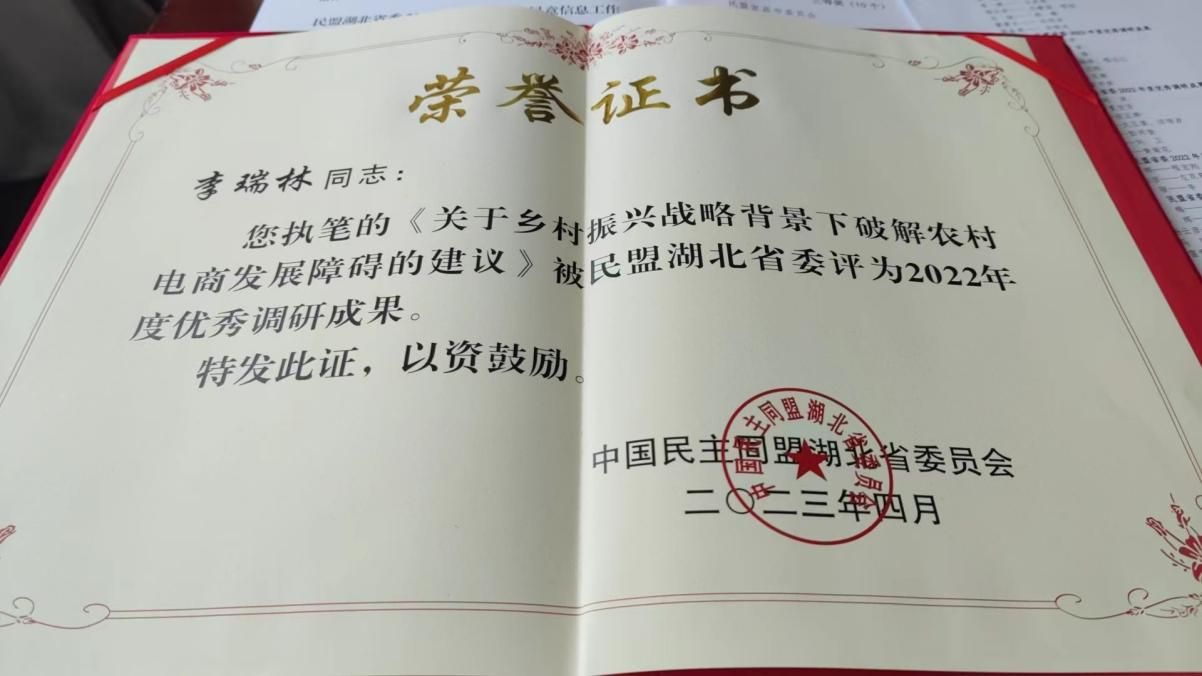 民盟湖北省委
信息工作
民盟宜昌市委员会
三等奖（10个）
荣誉证书
李瑞林同志：
您执笔的《关于乡村振兴战略背景下破解农村
电商发展障碍的建议》被民盟湖北省委评为2022年
度优秀调研成果。
特发此证，以资鼓励。
中国民主同盟湖北省委员会
二〇二三年四月
中国民主同盟湖北省委员会